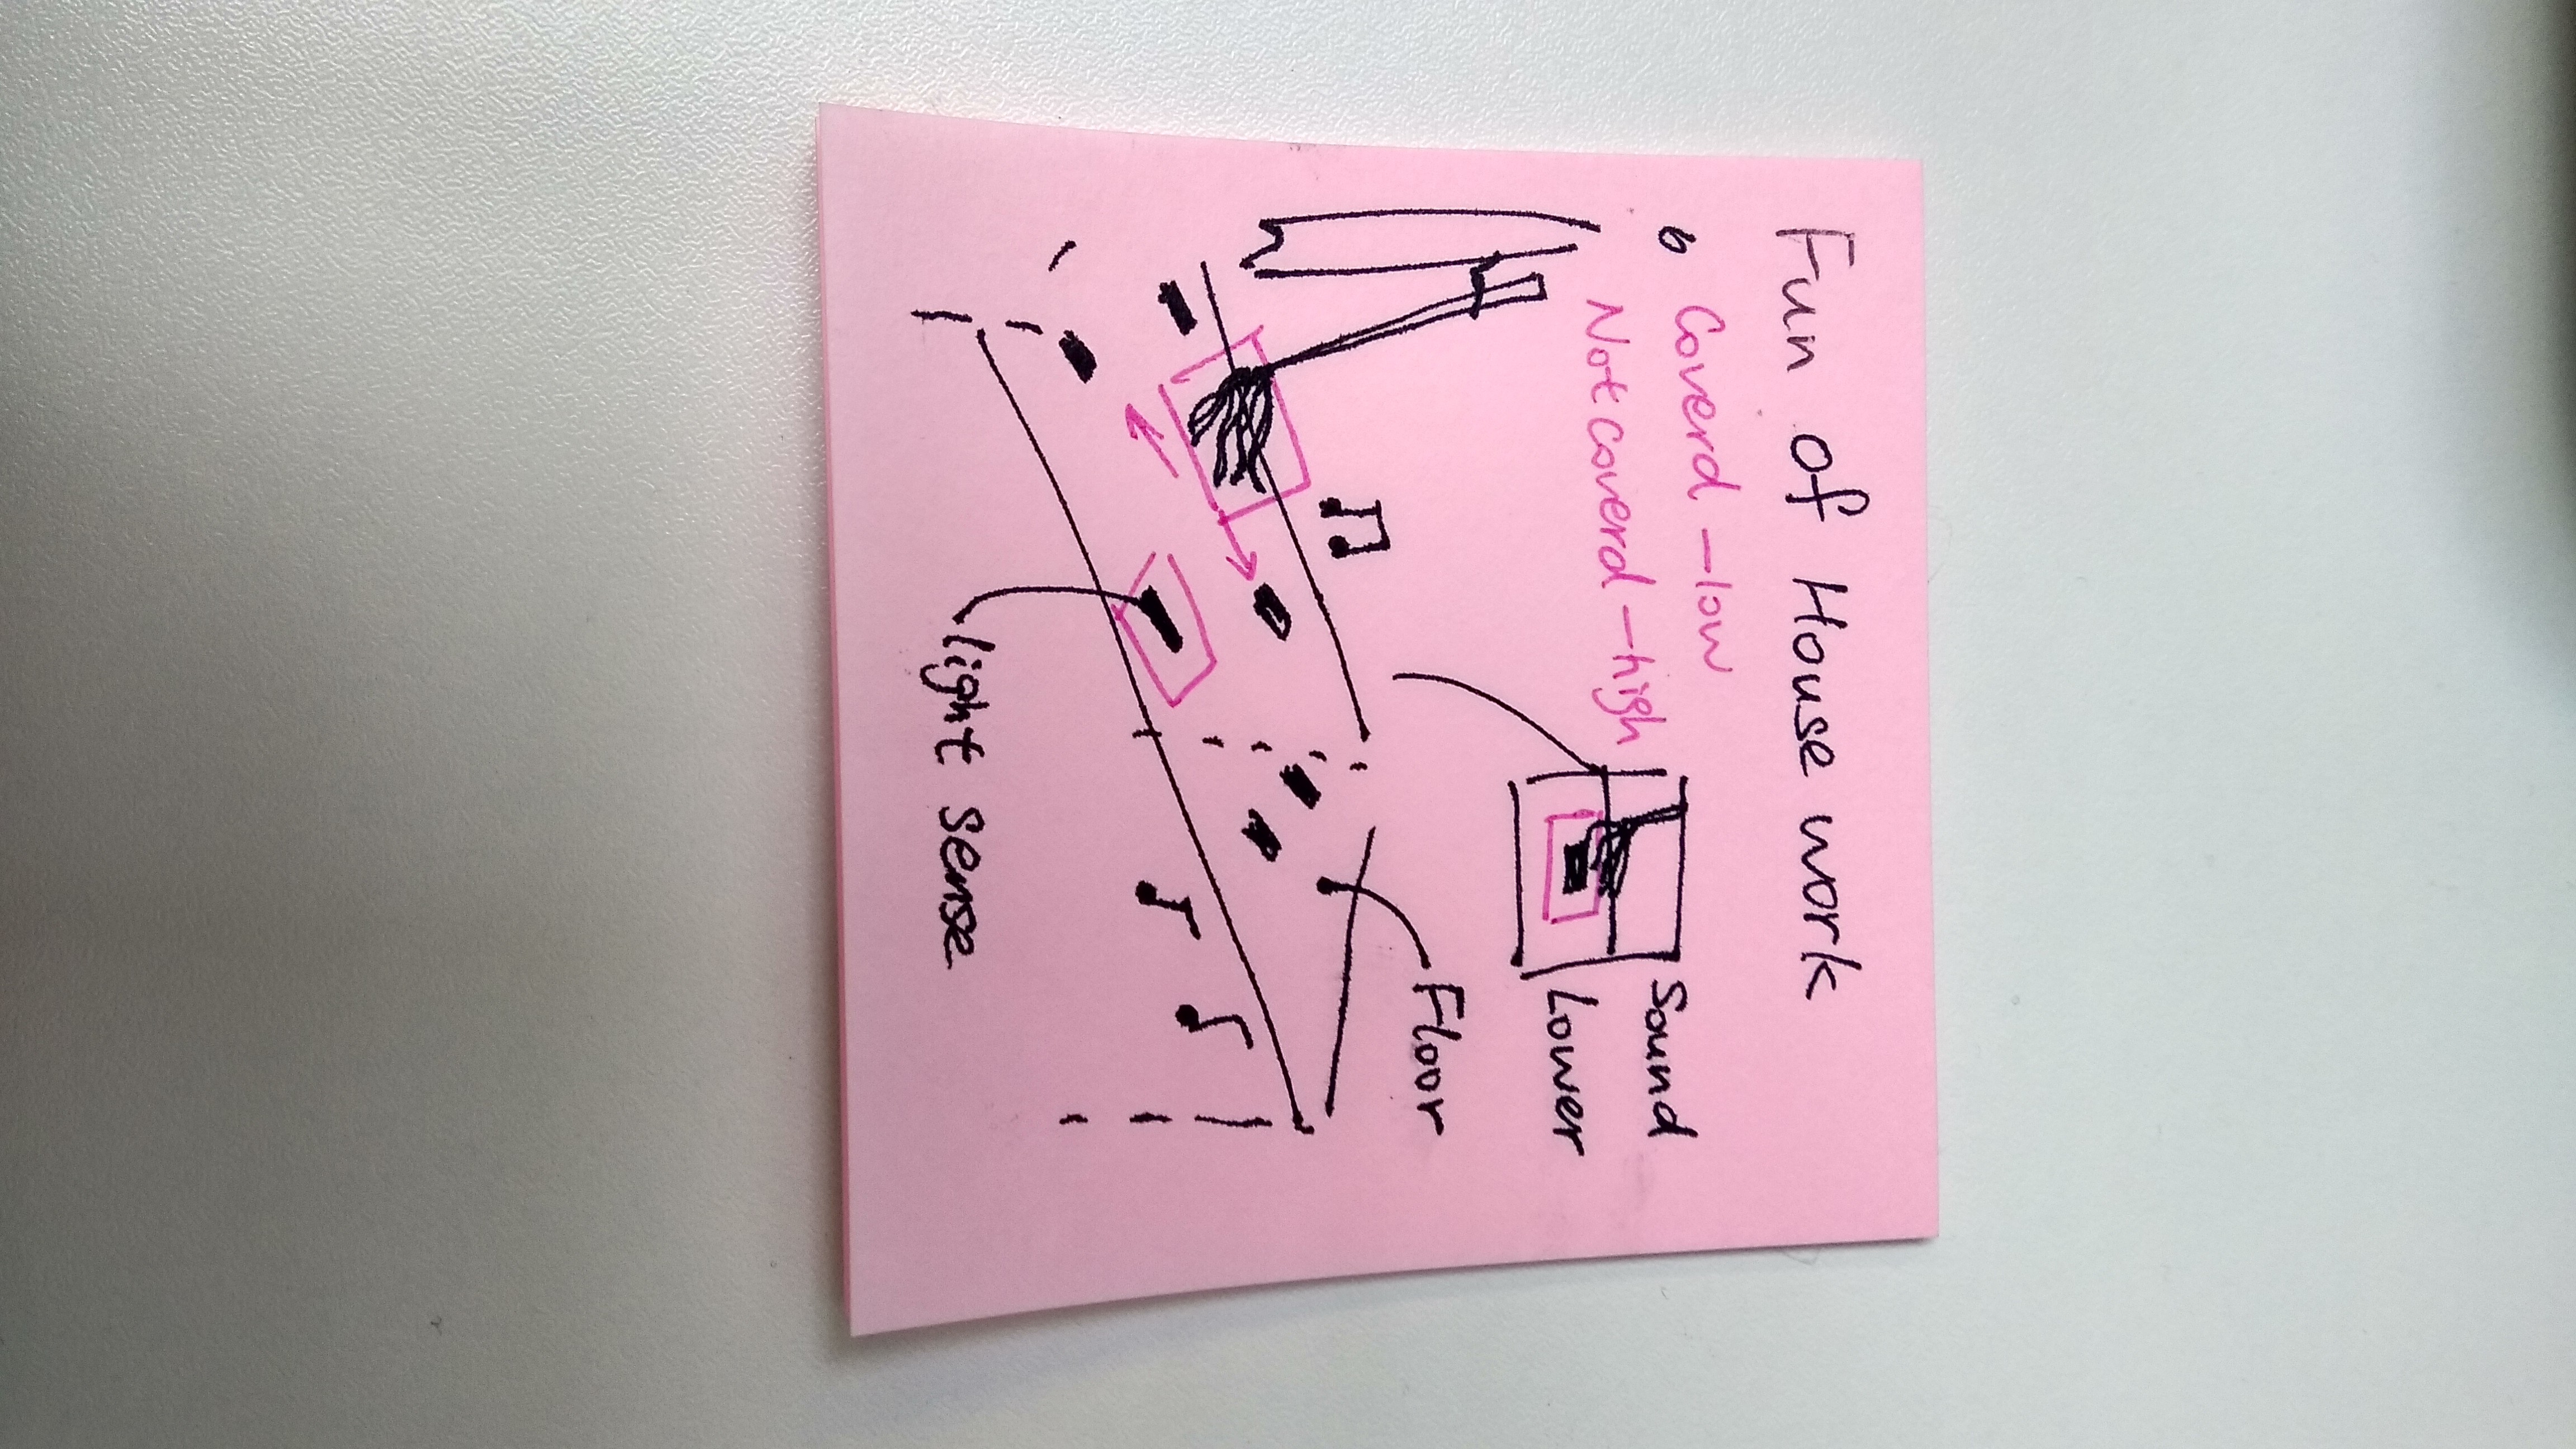 Fun of House work
Coverd - low
Not coverd - high
Sound
Lower
Floor
light sense